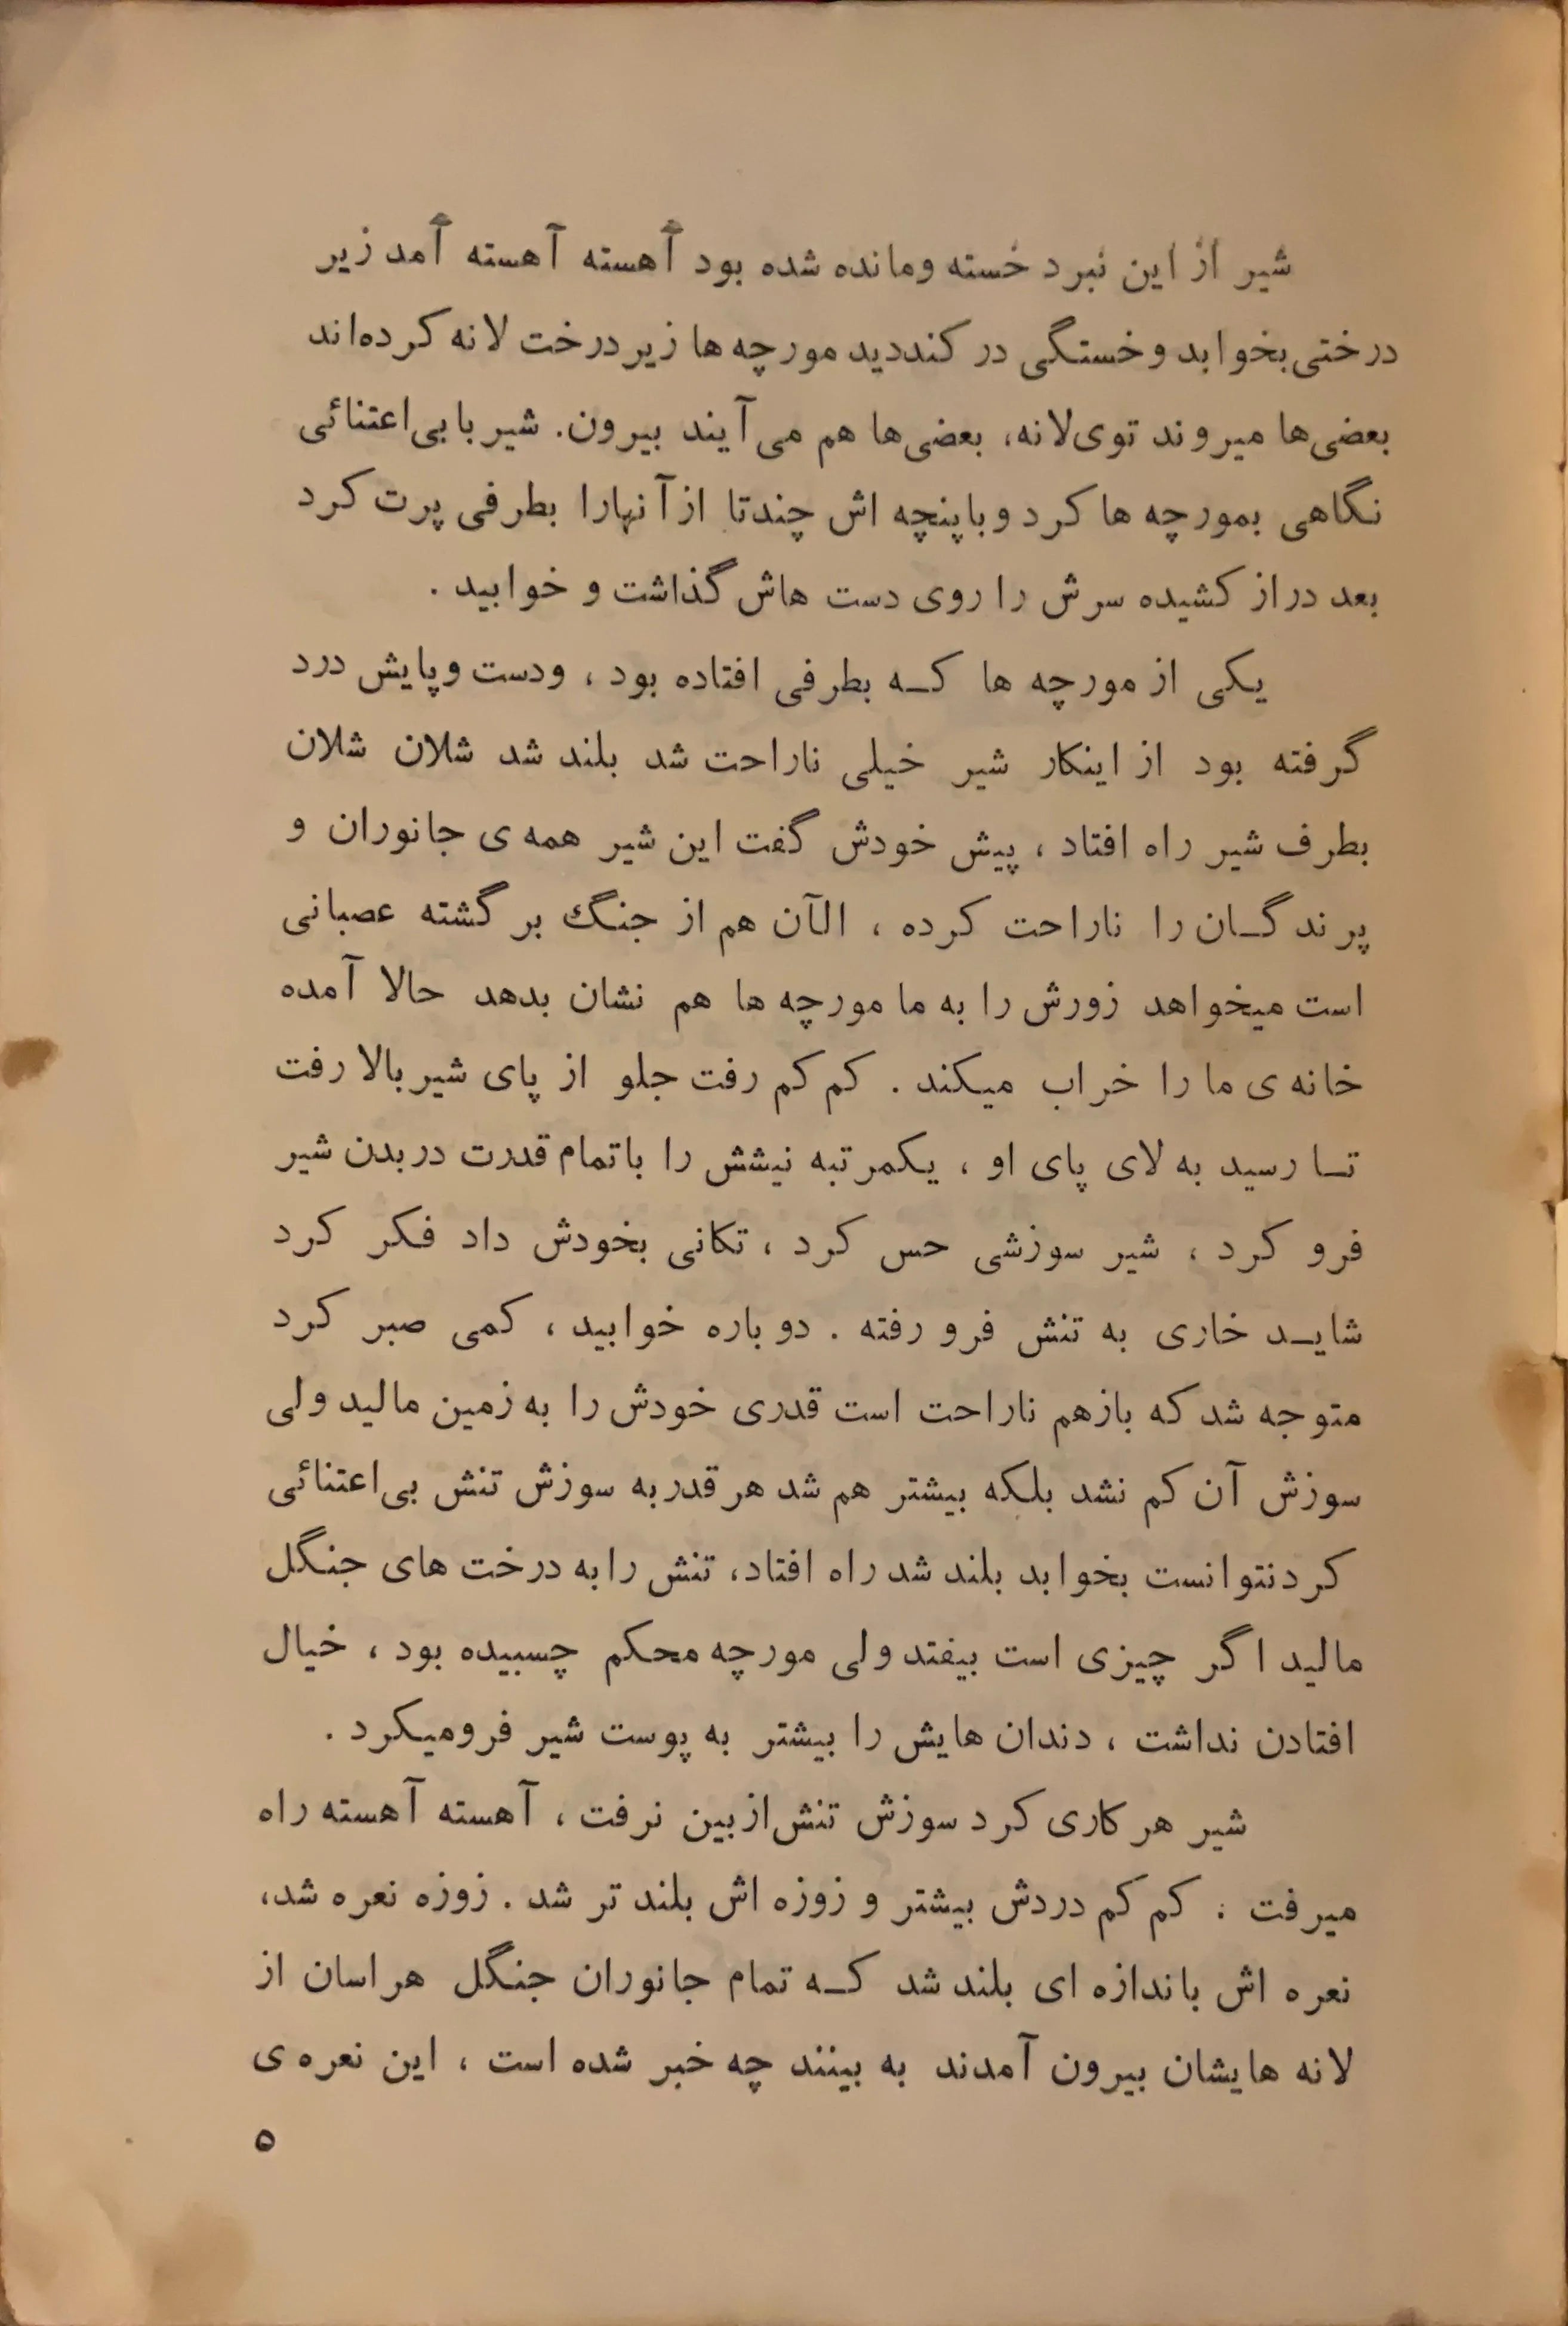 شیر از این نبرد خسته ومانده شده بود آهسته آهسته آمد زیر
درختی بخوابد وخستگی در کنددید مورچه ها زیر درخت لانه کرده‌اند
بعضی‌ها میروند توی‌لانه، بعضی‌ها هم می‌آیند بیرون. شیر با بی‌اعتنائی
نگاهی بمورچه ها کرد و با پنچه اش چندتا از آنهارا بطرفی پرت کرد
بعد دراز کشیده سرش را روی دست هاش گذاشت و خوابید .
یکی از مورچه ها کـه بطرفی افتاده بود ، ودست وپایش درد
گرفته بود از اینکار شیر خیلی ناراحت شد بلند شد شلان شلان
بطرف شیر راه افتاد ، پیش خودش گفت این شیر همه ی جانوران و
پرندگـان را ناراحت کرده ، الآن هم از جنگ برگشته عصبانی
است میخواهد زورش را به ما مورچه ها هم نشان بدهد حالا آمده
خانه ی ما را خراب میکند . کم کم رفت جلو از پای شیر بالا رفت
تـا رسید به لای پای او ، یکمرتبه نیشش را با تمام قدرت در بدن شیر
فرو کرد ، شیر سوزشی حس کرد ، تکانی بخودش داد فکر کرد
شایـد خاری به تنش فرو رفته . دو باره خوابید ، کمی صبر کرد
متوجه شد که بازهم ناراحت است قدری خودش را به زمین مالید ولی
سوزش آن کم نشد بلکه بیشتر هم شد هر قدر به سوزش تنش بی‌اعتنائی
کرد نتوانست بخوابد بلند شد راه افتاد، تنش را به درخت های جنگل
مالید اگر چیزی است بیفتد ولی مورچه محکم چسبیده بود ، خیال
افتادن نداشت ، دندان هایش را بیشتر به پوست شیر فرومیکرد .
شیر هر کاری کرد سوزش تنش از بین نرفت ، آهسته آهسته راه
میرفت . کم کم دردش بیشتر و زوزه اش بلند تر شد . زوزه نعره شد،
نعره اش باندازه ای بلند شد کـه تمام جانوران جنگل هراسان از
لانه هایشان بیرون آمدند به بینند چه خبر شده است ، این نعره ی
۵